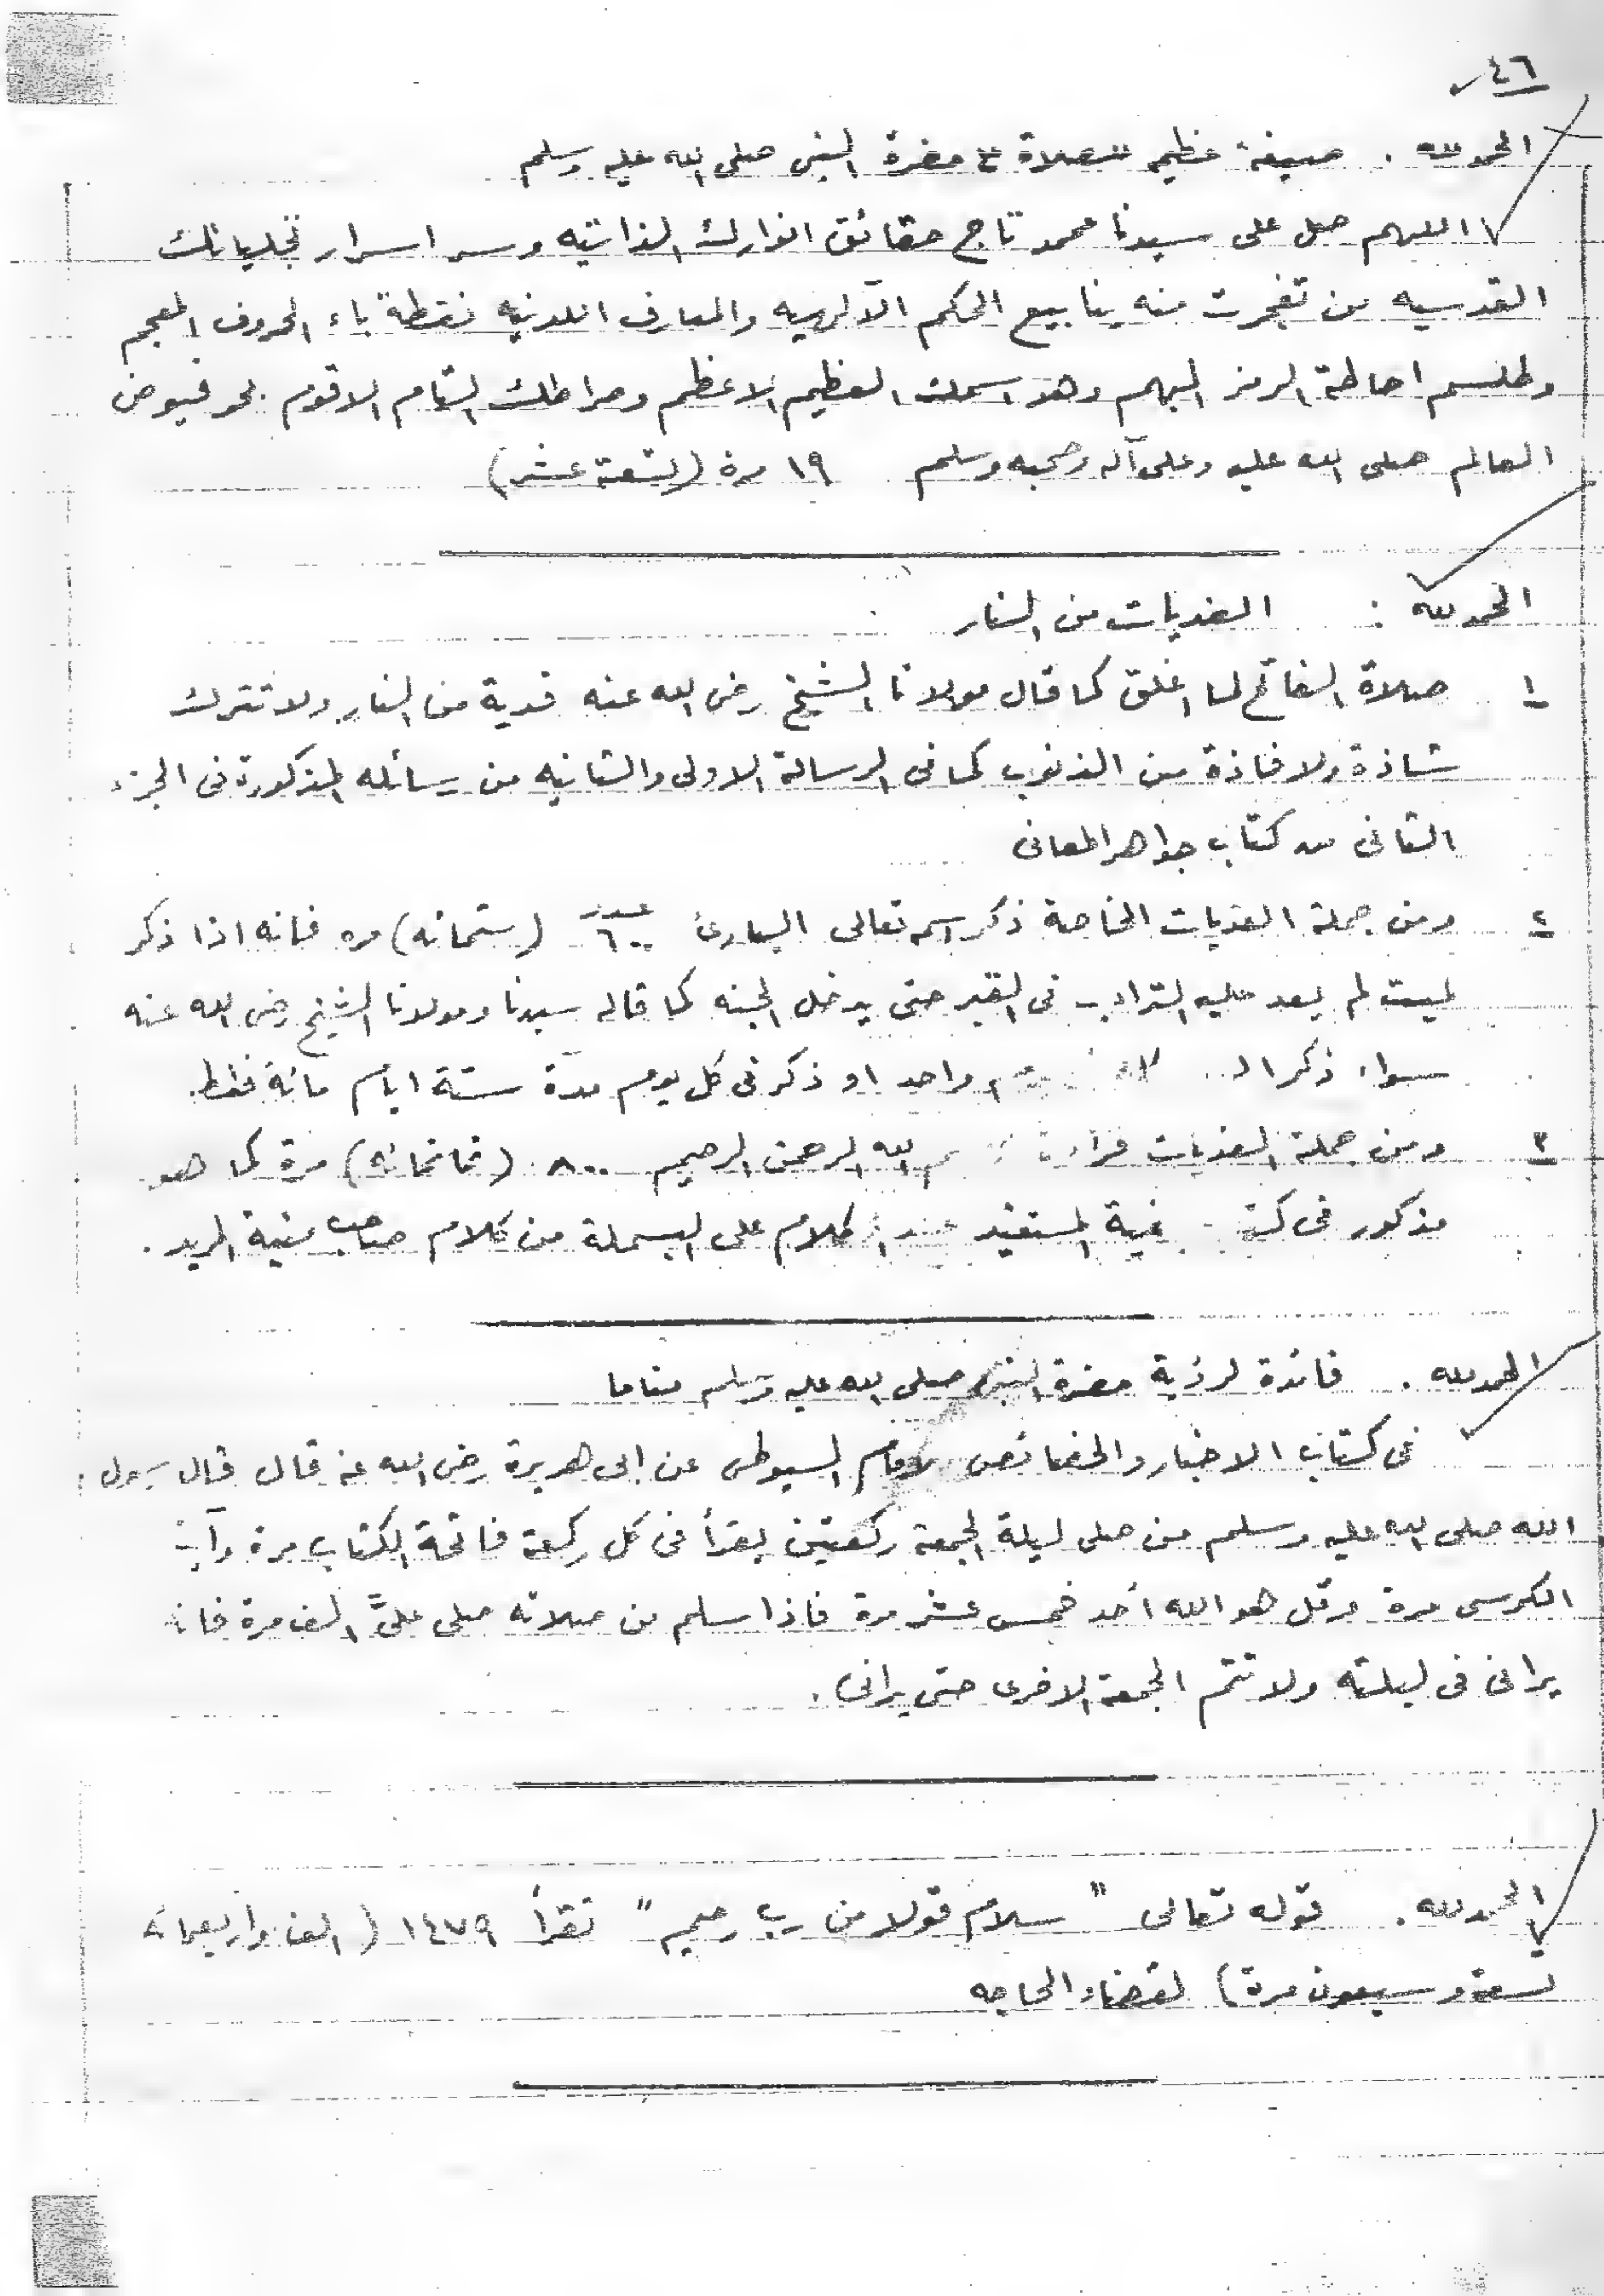 ٤٦
الحمد لله . صيغة عظيمه للصلاة ع حضرة النبى صلى الله عليه وسلم
اللهم صل على سيدنا محمد تاج حقائق انوارك الذاتيه وسر اسرار تجلياتك
القدسيه من تفجرت منه ينابيع الحكم الآلهيه والمعارف اللدنيه نقطة باء الحروف المعجم
وطلسم احاطة الرمز المبهم وهو اسمك العظيم الاعظم وصراطك التام الاقوم بحر فيوض
العالم صلى الله عليه وعلى آله وصحبه وسلم ١٩ مرة (تسعة عشر)
الحمد لله : الفديات من النار
١ صلاة الفاتح لما اغلق كما قال مولانا الشيخ رضى الله عنه فدية من النار ولا تترك
شاذة ولا فاذة من الذنوب كما فى الرسالة الاولى والثانيه من رسائله المذكورة فى الجزء
الثانى من كتاب جواهر المعانى
٢ ومن جملة الفديات الخاصة ذكر اسمه تعالى البارئ عدد ٦٠٠ (ستمائه) مره فانه اذا ذكر
لميت لم يعد عليه التراب فى القبر حتى يدخل الجنه كما قاله سيدنا ومولانا الشيخ رضى الله عنه
سواء ذكر واحد او ذكر فى كل يوم مدة ستة ايام مائة فقط.
٣ ومن جملة الفديات قراءة الله الرحمن الرحيم ٨٠٠ (ثمانمائه) مرة كما هو
مذكور فى بغية المستفيد عند الكلام على البسملة من كلام صاحب منية المريد .
الحمد لله . فائدة لرؤية حضرة النبى صلى الله عليه وسلم مناما
فى كتاب الاخبار والخصائص للامام السيوطى عن ابى هريرة رضى الله عنه قال قال رسول
الله صلى الله عليه وسلم من صلى ليلة الجمعة ركعتين يقرأ فى كل ركعة فاتحة الكتاب مرة وآية
الكرسى مرة وقل هو الله أحد خمس عشر مرة فاذا سلم من صلاته صلى علىَّ الف مرة فانه
يرانى فى ليلته ولا تتم الجمعة الاخرى حتى يرانى .
الحمد لله . قوله تعالى " سلام قولا من رب رحيم " تقرأ ١٤٧٩ ( الف واربعمائه
تسعة وسبعون مرة) لقضاء الحاجه